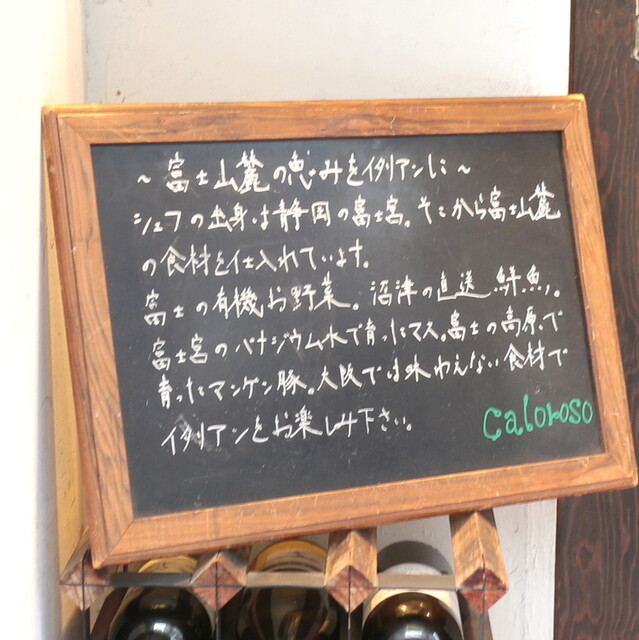 ~富士山麓の恵みをイタリアンに~
シェフの出身は静岡の富士宮。そこから富士山麓
の食材を仕入れています。
富士の有機お野菜。沼津の直送鮮魚。
富士宮のバナジウム水で育ったマス。富士の高原で
育ったマンゲン豚。大阪では味わえない食材で
イタリアンをお楽しみ下さい。
caloroso